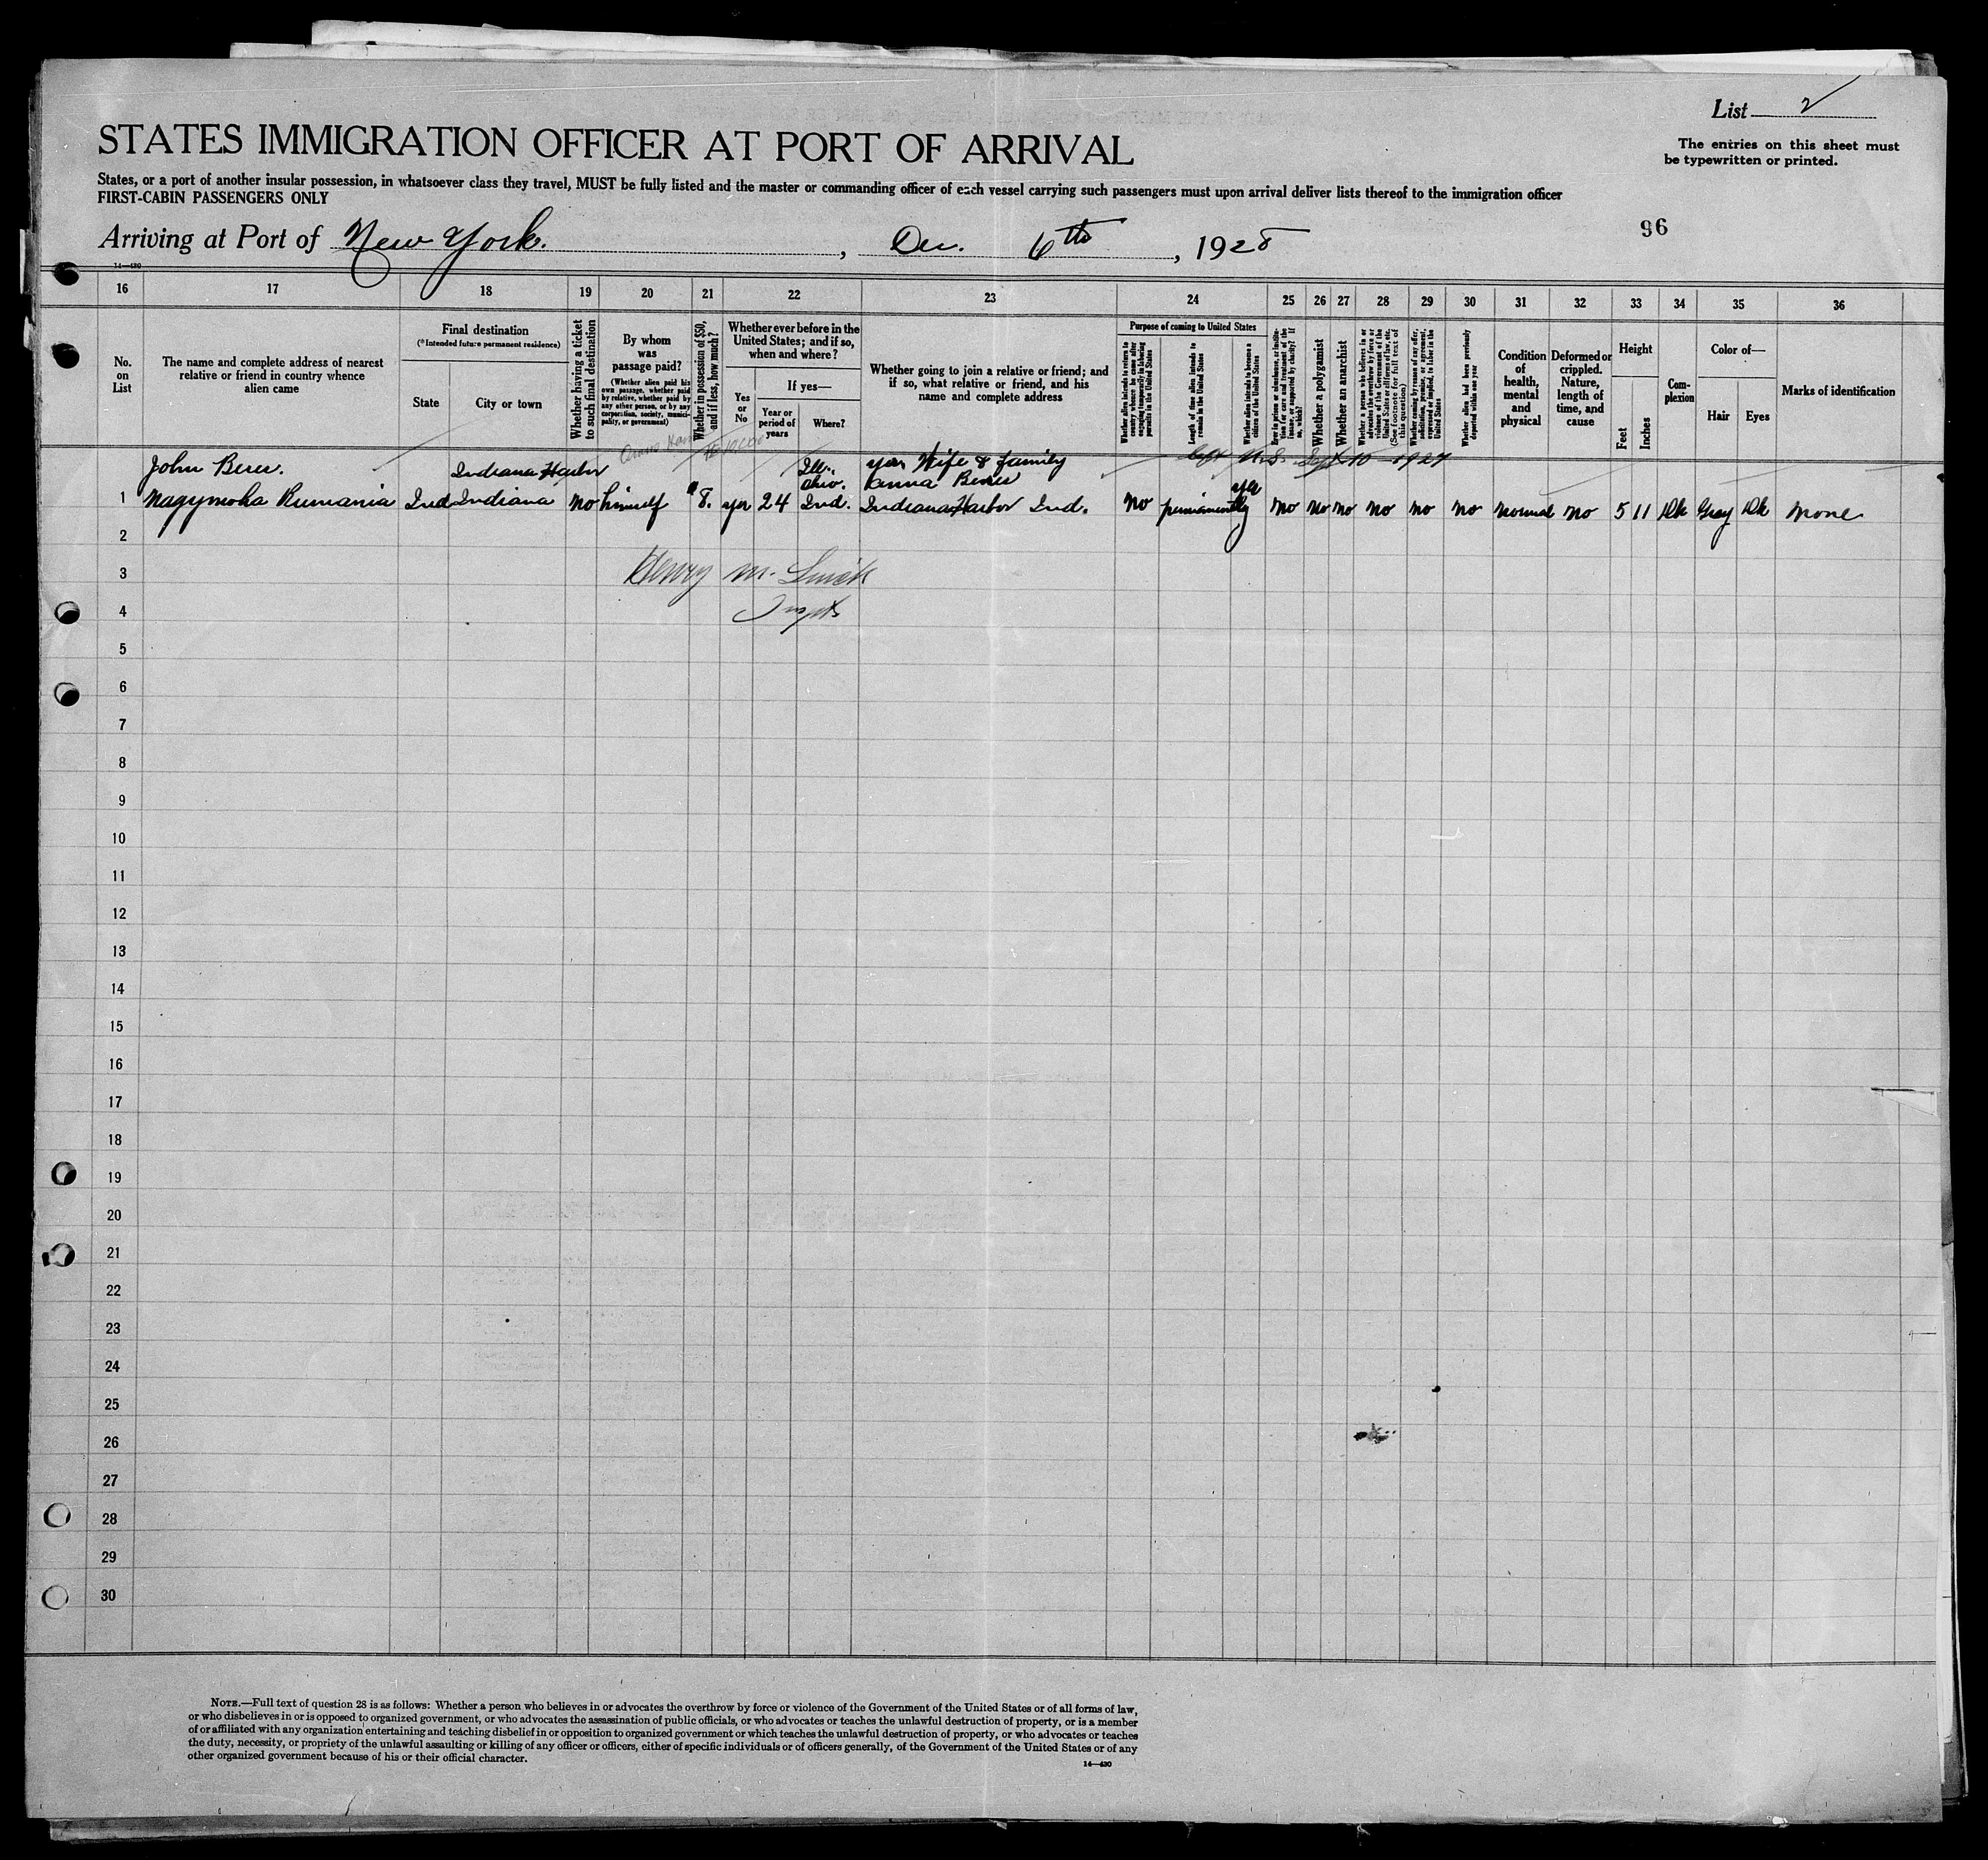 List 2
The entries on this sheet must
be typewritten or printed.
STATES IMMIGRATION OFFICER AT PORT OF ARRIVAL
States, or a port of another insular possession, in whatsoever class they travel, MUST be fully listed and the master or commanding officer of each vessel carrying such passengers must upon arrival deliver lists thereof to the immigration officer
FIRST-CABIN PASSENGERS ONLY
96
Arriving at Port of New York. , Dec. 6th , 1928
14—430
16 17 18 19 20 21 22 23 24 25 26 27 28 29 30 31 32 33 34 35 36
No. on List
The name and complete address of nearest relative or friend in country whence alien came
Final destination
(*Intended future permanent residence)
State
City or town
Whether having a ticket to such final destination
By whom was passage paid?
(Whether alien paid his own passage, whether paid by relative, whether paid by any other person, or by any corporation, society, municipality, or government)
Whether in possession of $50, and if less, how much?
Whether ever before in the United States; and if so, when and where?
Yes or No
If yes—
Year or period of years
Where?
Whether going to join a relative or friend; and if so, what relative or friend, and his name and complete address
Purpose of coming to United States
Whether alien intends to return to country whence he came after engaging temporarily in laboring pursuits in the United States
Length of time alien intends to remain in the United States
Whether alien intends to become a citizen of the United States
Ever in prison or almshouse, or institution for care and treatment of the insane, or supported by charity? If so, which?
Whether a polygamist
Whether an anarchist
Whether a person who believes in or advocates the overthrow by force or violence of the Government of the United States or all forms of law, etc. (See footnote for full text of this question)
Whether coming by reason of any offer, solicitation, promise, or agreement, expressed or implied, to labor in the United States
Whether alien had been previously deported within one year
Condition of health, mental and physical
Deformed or crippled. Nature, length of time, and cause
Height
Feet
Inches
Complexion
Color of—
Hair
Eyes
Marks of identification
John Beres. Indiana Harbor Ill. yes Wife & family left U.S. Sept 10 1927
Ohio. Anna Beres yes
1 Nagymoha Rumania Ind Indiana No himself $8. yes 24 Ind. Indiana Harbor Ind. No permanently No No No No No No Normal No 5 11 Dk Gray Dk None
2
3 Henry M.
4
5
6
7
8
9
10
11
12
13
14
15
16
17
18
19
20
21
22
23
24
25
26
27
28
29
30
NOTE.—Full text of question 28 is as follows: Whether a person who believes in or advocates the overthrow by force or violence of the Government of the United States or of all forms of law,
or who disbelieves in or is opposed to organized government, or who advocates the assassination of public officials, or who advocates or teaches the unlawful destruction of property, or is a member
of or affiliated with any organization entertaining and teaching disbelief in or opposition to organized government or which teaches the unlawful destruction of property, or who advocates or teaches
the duty, necessity, or propriety of the unlawful assaulting or killing of any officer or officers, either of specific individuals or of officers generally, of the Government of the United States or of any
other organized government because of his or their official character.
14—430